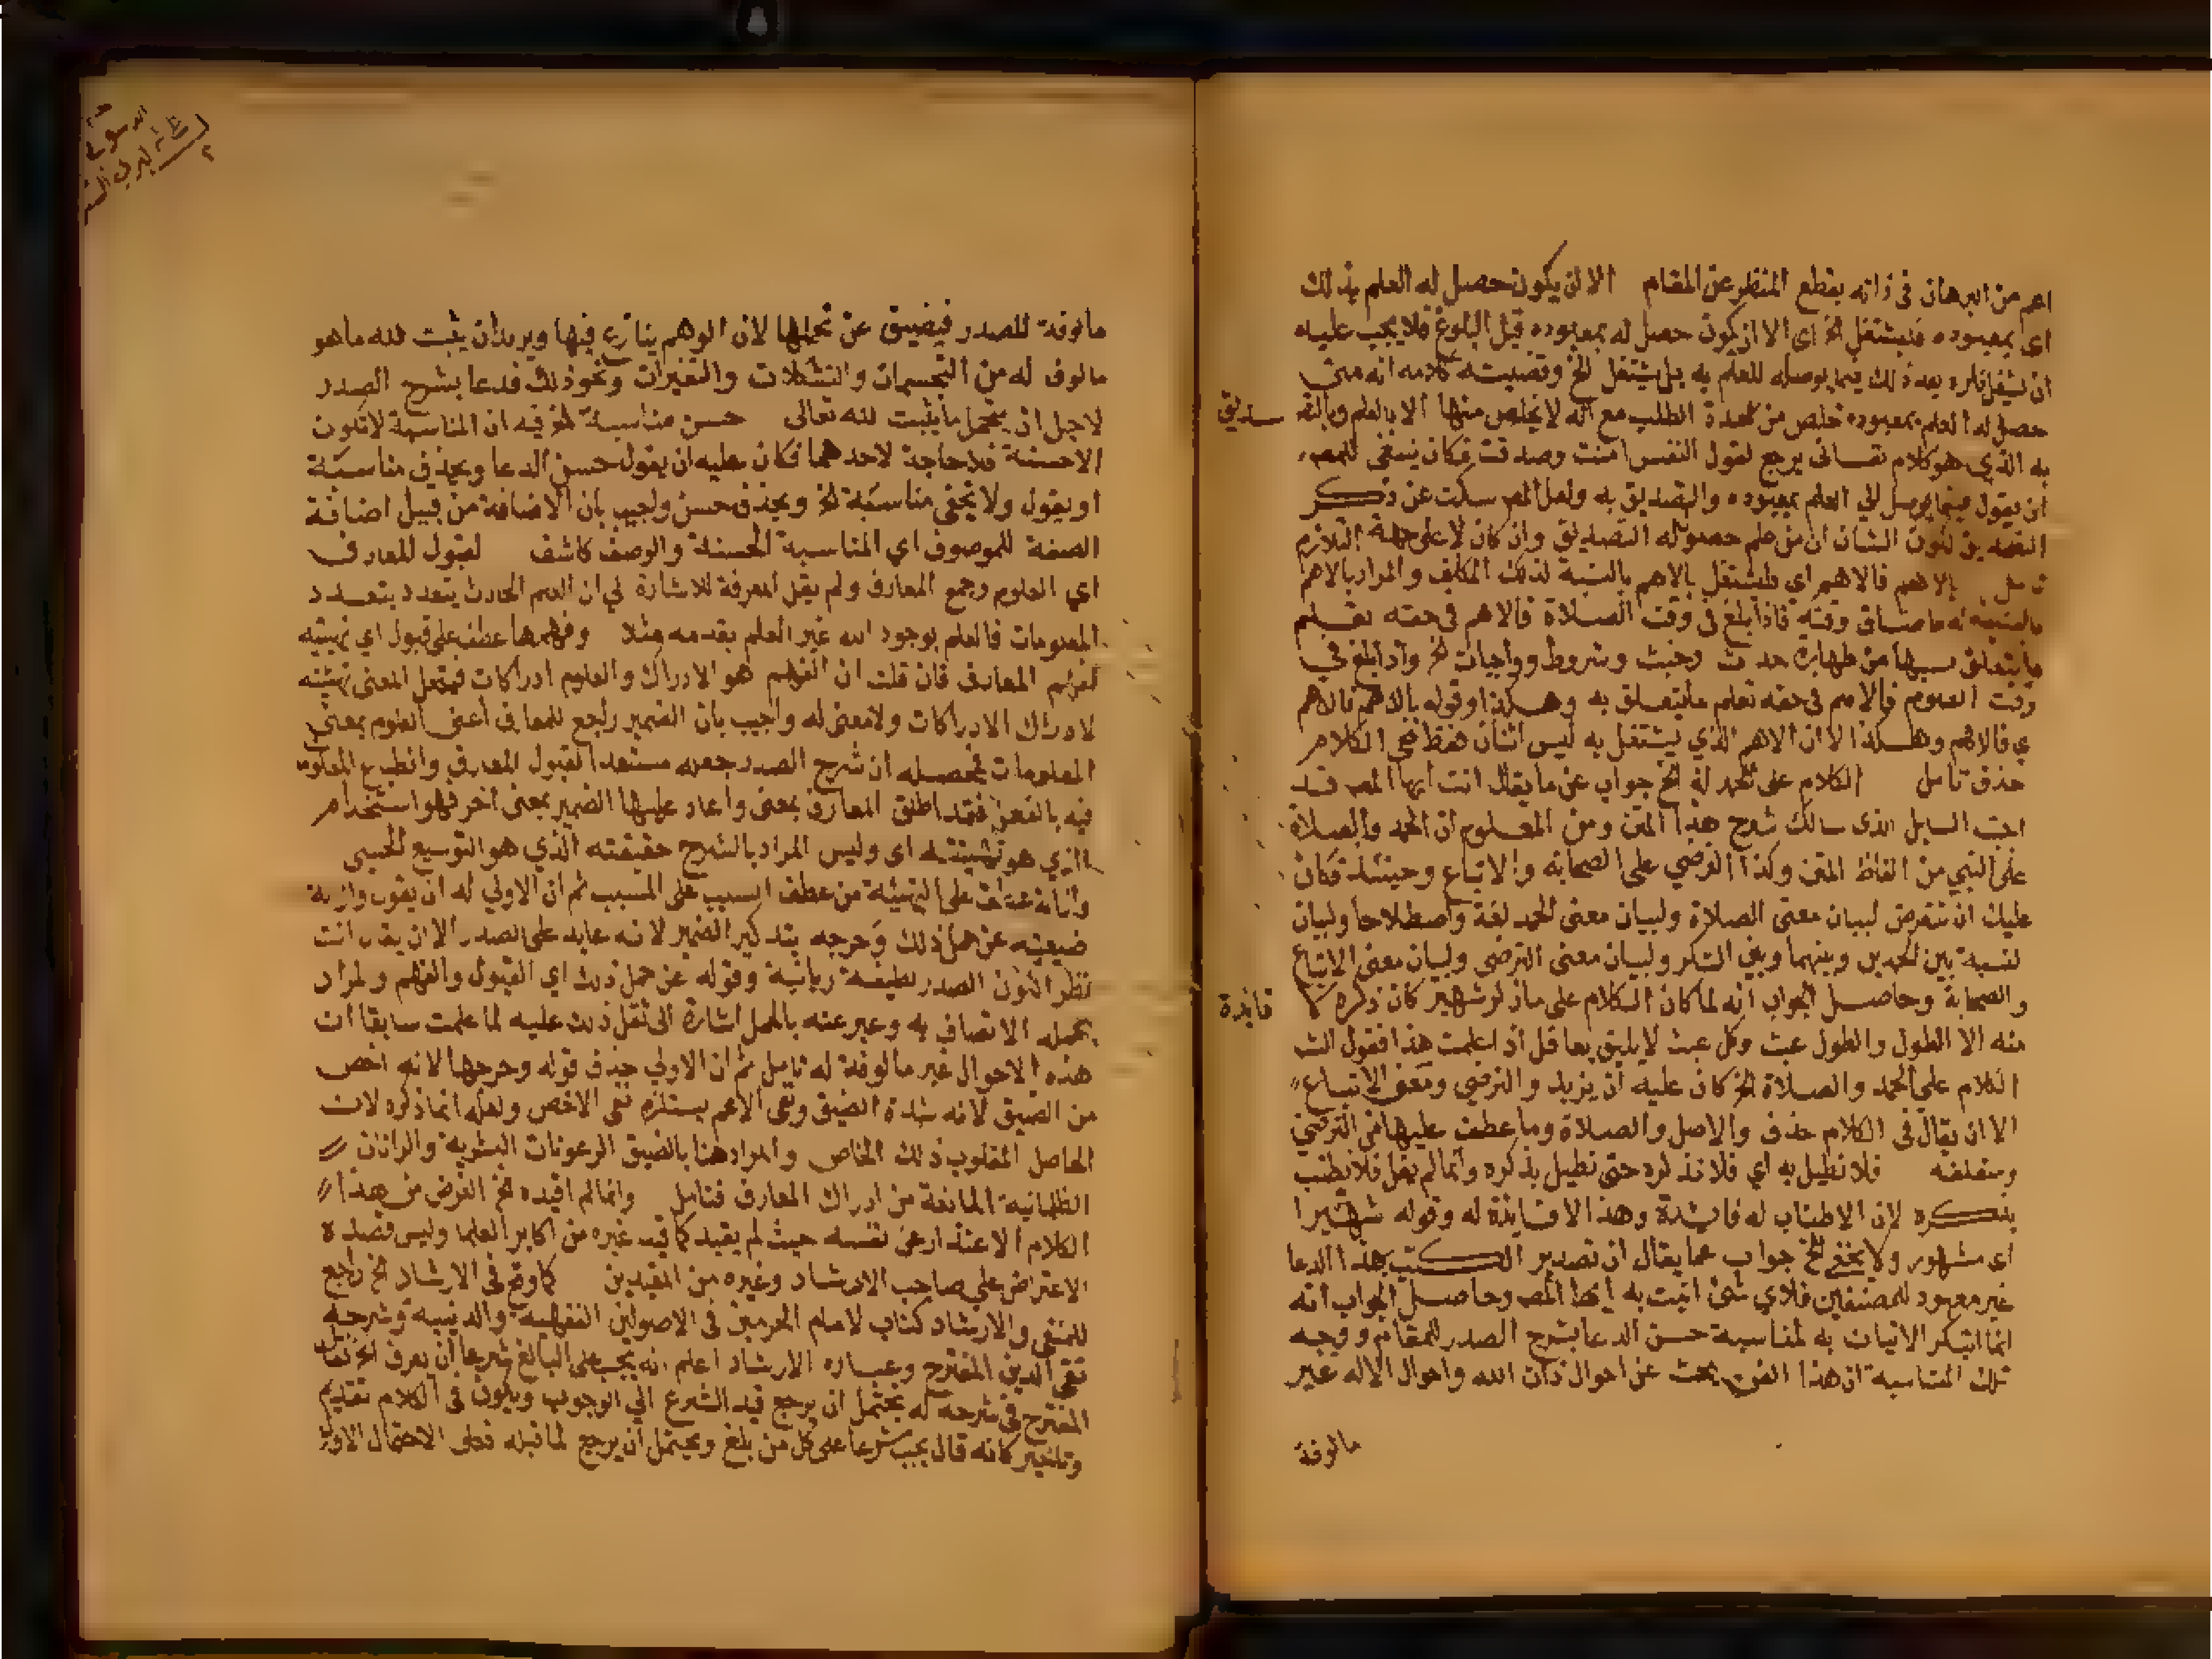 اعم من البرهان في ذاته بقطع النظر عن المقام الا ان يكون حصل له العلم بذلك
اي بمعبوده فليشتغل الخ اي الا ان يكون حصل له بمعبوده قبل البلوغ فلا يجب عليه
ان يشغل فكره بعد ذلك فيما يوصله للعلم به بل يشتغل الخ وقضيته كلامه انه متى
حصل له العلم بمعبوده خلص من عهدة الطلب مع انه لا يخلص منها الا بالعلم وبالتصديق
به الذي هو كلام نفساني يرجع لقول النفس امنت وصدقت فكان ينبغي للمص
ان يقول فيما يوصل الي العلم بمعبوده والتصديق به ولعل المص سكت عن ذكر
التصديق لكون الشان ان من علم حصوله التصديق وان كان لا على جهة التلازم
بالاهم فالاهم اي فليشتغل بالاهم بالنسبة لذلك المكلف والمراد بالاهم
بالنسبة له ما ضاق وقته فاذا بلغ في وقت الصلاة فالاهم في حقه تعلم
ما يتعلق بها من طهارة حدث وخبث وشروط وواجبات الخ واذا بلغ في
وقت الصوم فالاهم في حقه تعلم ما يتعلق به وهكذا وقوله بالاهم فالاهم
اي فالاهم وهكذا لا ان الاهم الذي يشتغل به ليس اثنان فقط ففي الكلام
حذف تامل الكلام على الحمد لله الخ جواب عن ما يقال انت ايها المص قد
اجبت السايل الذي سالك شرح هذا المتن ومن المعلوم ان الحمد والصلاة
على النبي من الفاظ المتن وكذا الترضي على الصحابة والاتباع وحينئذ فكان
عليك ان تتعرض لبيان معنى الصلاة ولبيان معنى الحمد لغة واصطلاحا ولبيان
لنسبة بين الحمدين وبينهما وبين الشكر ولبيان معنى الترضي ولبيان معنى الاتباع
والصحابة وحاصل الجواب انه لما كان الكلام على ما ذكر شهير كان ذكره لا فايدة
منه الا الطول والطول عبث وكل عبث لا يليق بعاقل اذا علمت هذا فقول الش
الكلام على الحمد والصلاة الخ كان عليه ان يزيد والترضي ومعنى الاتباع
الا ان يقال في الكلام حذف والاصل والصلاة وما عطف عليها من الترضي
ومتعلقه فلا نطيل به اي فلا نذكره حتى نطيل بذكره وانما لم يقل فلا نطنب
بذكره لان الاطناب له فايدة وهذا لا فايدة له وقوله شهيرا
اي مشهور ولا يخفى الخ جواب عما يقال ان تصدير الكتب بهذا الدعا
غير معهود للمصنفين فلاي شئ اتيت به ايها المص وحاصل الجواب انه
انما ابتكر الاتيان به لمناسبة حسن الدعا بشرح الصدر للمقام ووجه
تلك المناسبة ان هذا الفن يبحث عن احوال ذات الله واحوال الاله غير
مالوفة
مالوفة للصدر فيضيق عن تحملها لان الوهم ينازع فيها ويريد ان يثبت لله ما هو
مالوف له من التجسمات والتشكلات والتغيرات ونحو ذلك فدعا بشرح الصدر
لاجل ان يتحمل ما يثبت لله تعالى حسن مناسبة الخ فيه ان المناسبة لا تكون
الا حسنة فلا حاجة لاحدهما فكان عليه ان يقول حسن الدعا ويحذف مناسبة
او يقول ولا يخفى مناسبة الخ ويحذف حسن واجيب بان الاضافة من قبيل اضافة
الصفة للموصوف اي المناسبة الحسنة والوصف كاشف لقبول المعارف
اي العلوم وجمع المعارف ولم يقل المعرفة للاشارة الي ان العلم الحادث يتعدد بتعدد
المعلومات فالعلم بوجود الله غير العلم بقدمه مثلا وفهمها عطف على قبول اي تهيئته
لفهم المعارف فان قلت ان الفهم هو الادراك والعلوم ادراكات فيتحل المعنى تهيئته
لادراك الادراكات ولا معنى له واجيب بان الضمير راجع للمعارف اعني العلوم بمعنى
المعلومات فمحصله ان شرح الصدر جعله مستعدا لقبول المعارف وانطباع المعلومات
فيه بالفعل فقد اطلق المعارف بمعنى واعاد عليها الضمير بمعنى اخر فهو استخدام
الذي هو تهيئته اي وليس المراد بالشرح حقيقته الذي هو التوسيع الحسي
وازالة عطف على التهيئة من عطف السبب على المسبب ثم ان الاولي له ان يقول وازالة
ضيقه عن حمل ذلك وحرجه بتذكير الضمير لانه عايد على الصدر الا ان يقال انت
نظر الكون الصدر لطيفة ربانية وقوله عن حمل ذلك اي القبول والفهم والمراد
بحمله الاتصاف به وعبر عنه بالحمل اشارة الى ثقل ذلك عليه لما علمت سابقا ان
هذه الاحوال غير مالوفة له تامل ثم ان الاولي حذف قوله وحرجها لانه اخص
من الضيق لانه شدة الضيق ونفي الاعم يستلزم نفي الاخص ولعله انما ذكره لان
الحاصل المقلوب ذلك الخاص والمراد هنا بالضيق الرعونات البشرية والران
الظلمانية المانعة من ادراك المعارف فتامل وانما لم اقيده الخ الغرض من هذا
الكلام الاعتذار عن نفسه حيث لم يقيد كما قيد غيره من اكابر العلما وليس قصده
الاعتراض علي صاحب الارشاد وغيره من المقيدين كما وقع في الارشاد الخ راجع
للمنفي والارشاد كتاب لامام الحرمين في الاصولين الفقهية والدينية وشرحه
تقي الدين المقترح وعبارة الارشاد اعلم انه يجب على البالغ شرعا ان يعرف الخ فقال
المقترح في شرحه له يحتمل ان يرجع قيد الشرع الي الوجوب ويكون في الكلام تقديم
وتاخير كانه قال يجب شرعا على كل من بلغ ويحتمل ان يرجع لما قبله فعلى الاحتمال الاول